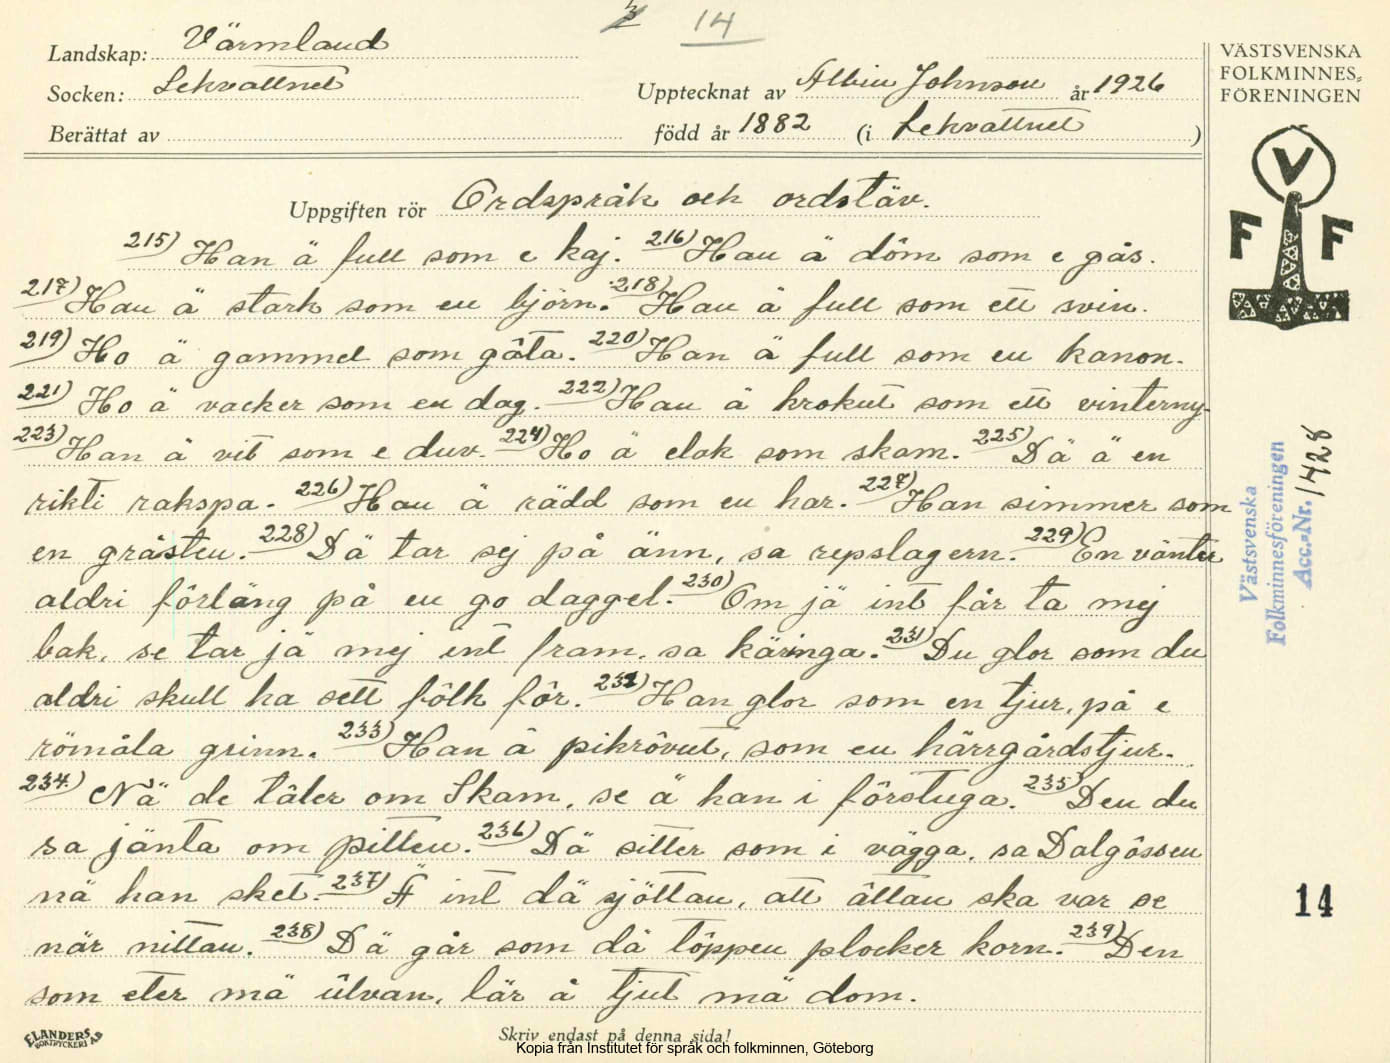 3 14
Landskap: Värmland
Socken: Lekvattnet
Upptecknat av Albin Johnson år 1926
Berättat av
född år 1882 (i Lekvattnet )
VÄSTSVENSKA
FOLKMINNES-
FÖRENINGEN
V
F F
Uppgiften rör Ordspråk och ordstäv.
215) Han ä full som e kaj. 216) Han ä dôm som e gås.
217) Han ä stark som en björn. 218) Han ä full som ett svin.
219) Ho ä gammel som gâta. 220) Han ä full som en kanon.
221) Ho ä vacker som en dag. 222) Han ä krokut som ett vinterny.
223) Han ä vit som e duv. 224) Ho ä elak som skam. 225) Dä ä en
rikti rakspa. 226) Han ä rädd som en har. 227) Han simmer som
en gråsten. 228) Dä tar sej på änn, sa repslagern. 229) En vänter
aldri fôrläng på en go daggel. 230) Om jä int får ta mej
bak, se tar jä mej int fram, sa käringa. 231) Du glor som du
aldri skull ha sett fôlk fôr. 232) Han glor som en tjur, på e
römåla grinn. 233) Han ä pikrôvut, som en härrgårdstjur.
234.) Nä de tâler om Skam, se ä han i fôrstuga. 235) Den du
sa jänta om pitten. 236) Dä sitter som i vägga, sa Dalgôssen
nä han sket. 237) Ä int dä sjöttan, att âttan ska var se
när nittan. 238) Dä går som dä tôppen plocker korn. 239) Den
som eter mä ûlvan, lär å tjut mä dom.
Västsvenska
Folkminnesföreningen
Acc.-Nr. 1428
14
ELANDERS
BOKTRYCKERI AB
Skriv endast på denna sida!
Kopia från Institutet för språk och folkminnen, Göteborg